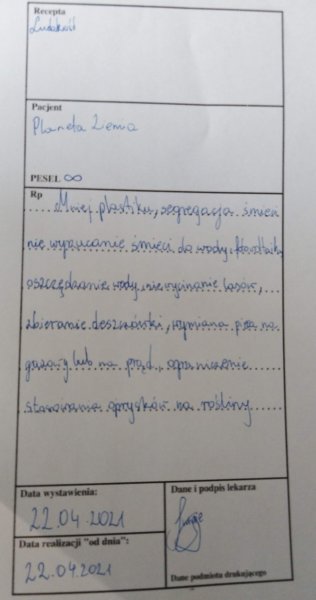 Recepta
Ludzkość
Pacjent
Planeta Ziemia
PESEL ∞
Rp
Mniej plastiku, segregacja śmieci
nie wyrzucanie śmieci do wody, fotowoltaika
oszczędzanie wody, nie wycinanie lasów,
zbieranie deszczówki, wymiana pieca na
gazowy lub na prąd, ograniczenie
stosowania oprysków na rośliny
Data wystawienia:
22.04.2021
Data realizacji "od dnia":
22.04.2021
Dane i podpis lekarza
Dane podmiotu drukującego